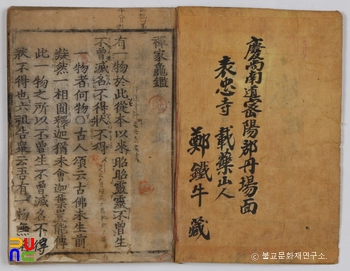 慶尚南道密陽郡丹場面
表忠寺 載藥山人
鄭鐵牛 藏
禪家龜鑑
有一物於此從本以來昭昭靈靈不曾生
不曾滅名不得狀不得
一物者何物○古人頌云古佛未生前
凝然一相圓釋迦猶未會迦葉豈能傳
此一物之所以不曾生不曾滅名不得
狀不得也六祖告衆云吾有一物無
© 불교문화재연구소.